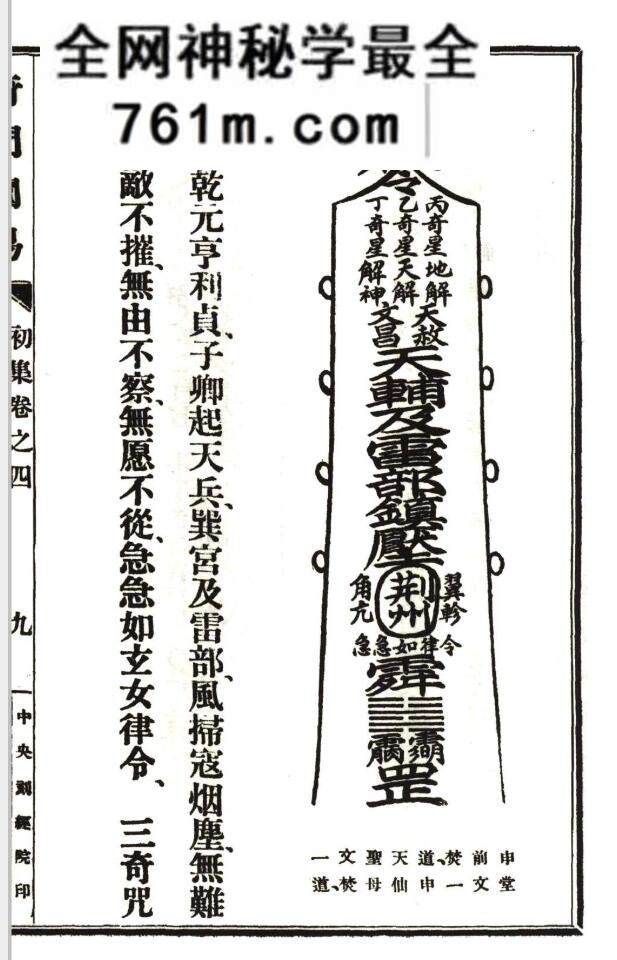 全网神秘学最全
761m.com
丙奇星地解
乙奇星天解
丁奇星解神
天赦
文昌
天輔及雷部鎮壓
翼軫
荊州
角亢
急急如律令
罡
申堂前文焚一道、申天仙聖母文焚、一道
乾元亨利貞、子卿起天兵、巽宮及雷部、風掃寇烟塵、無難
敵不摧、無由不察、無愿不從、急急如玄女律令、 三奇咒
初集卷之四
九
中央刻經院印